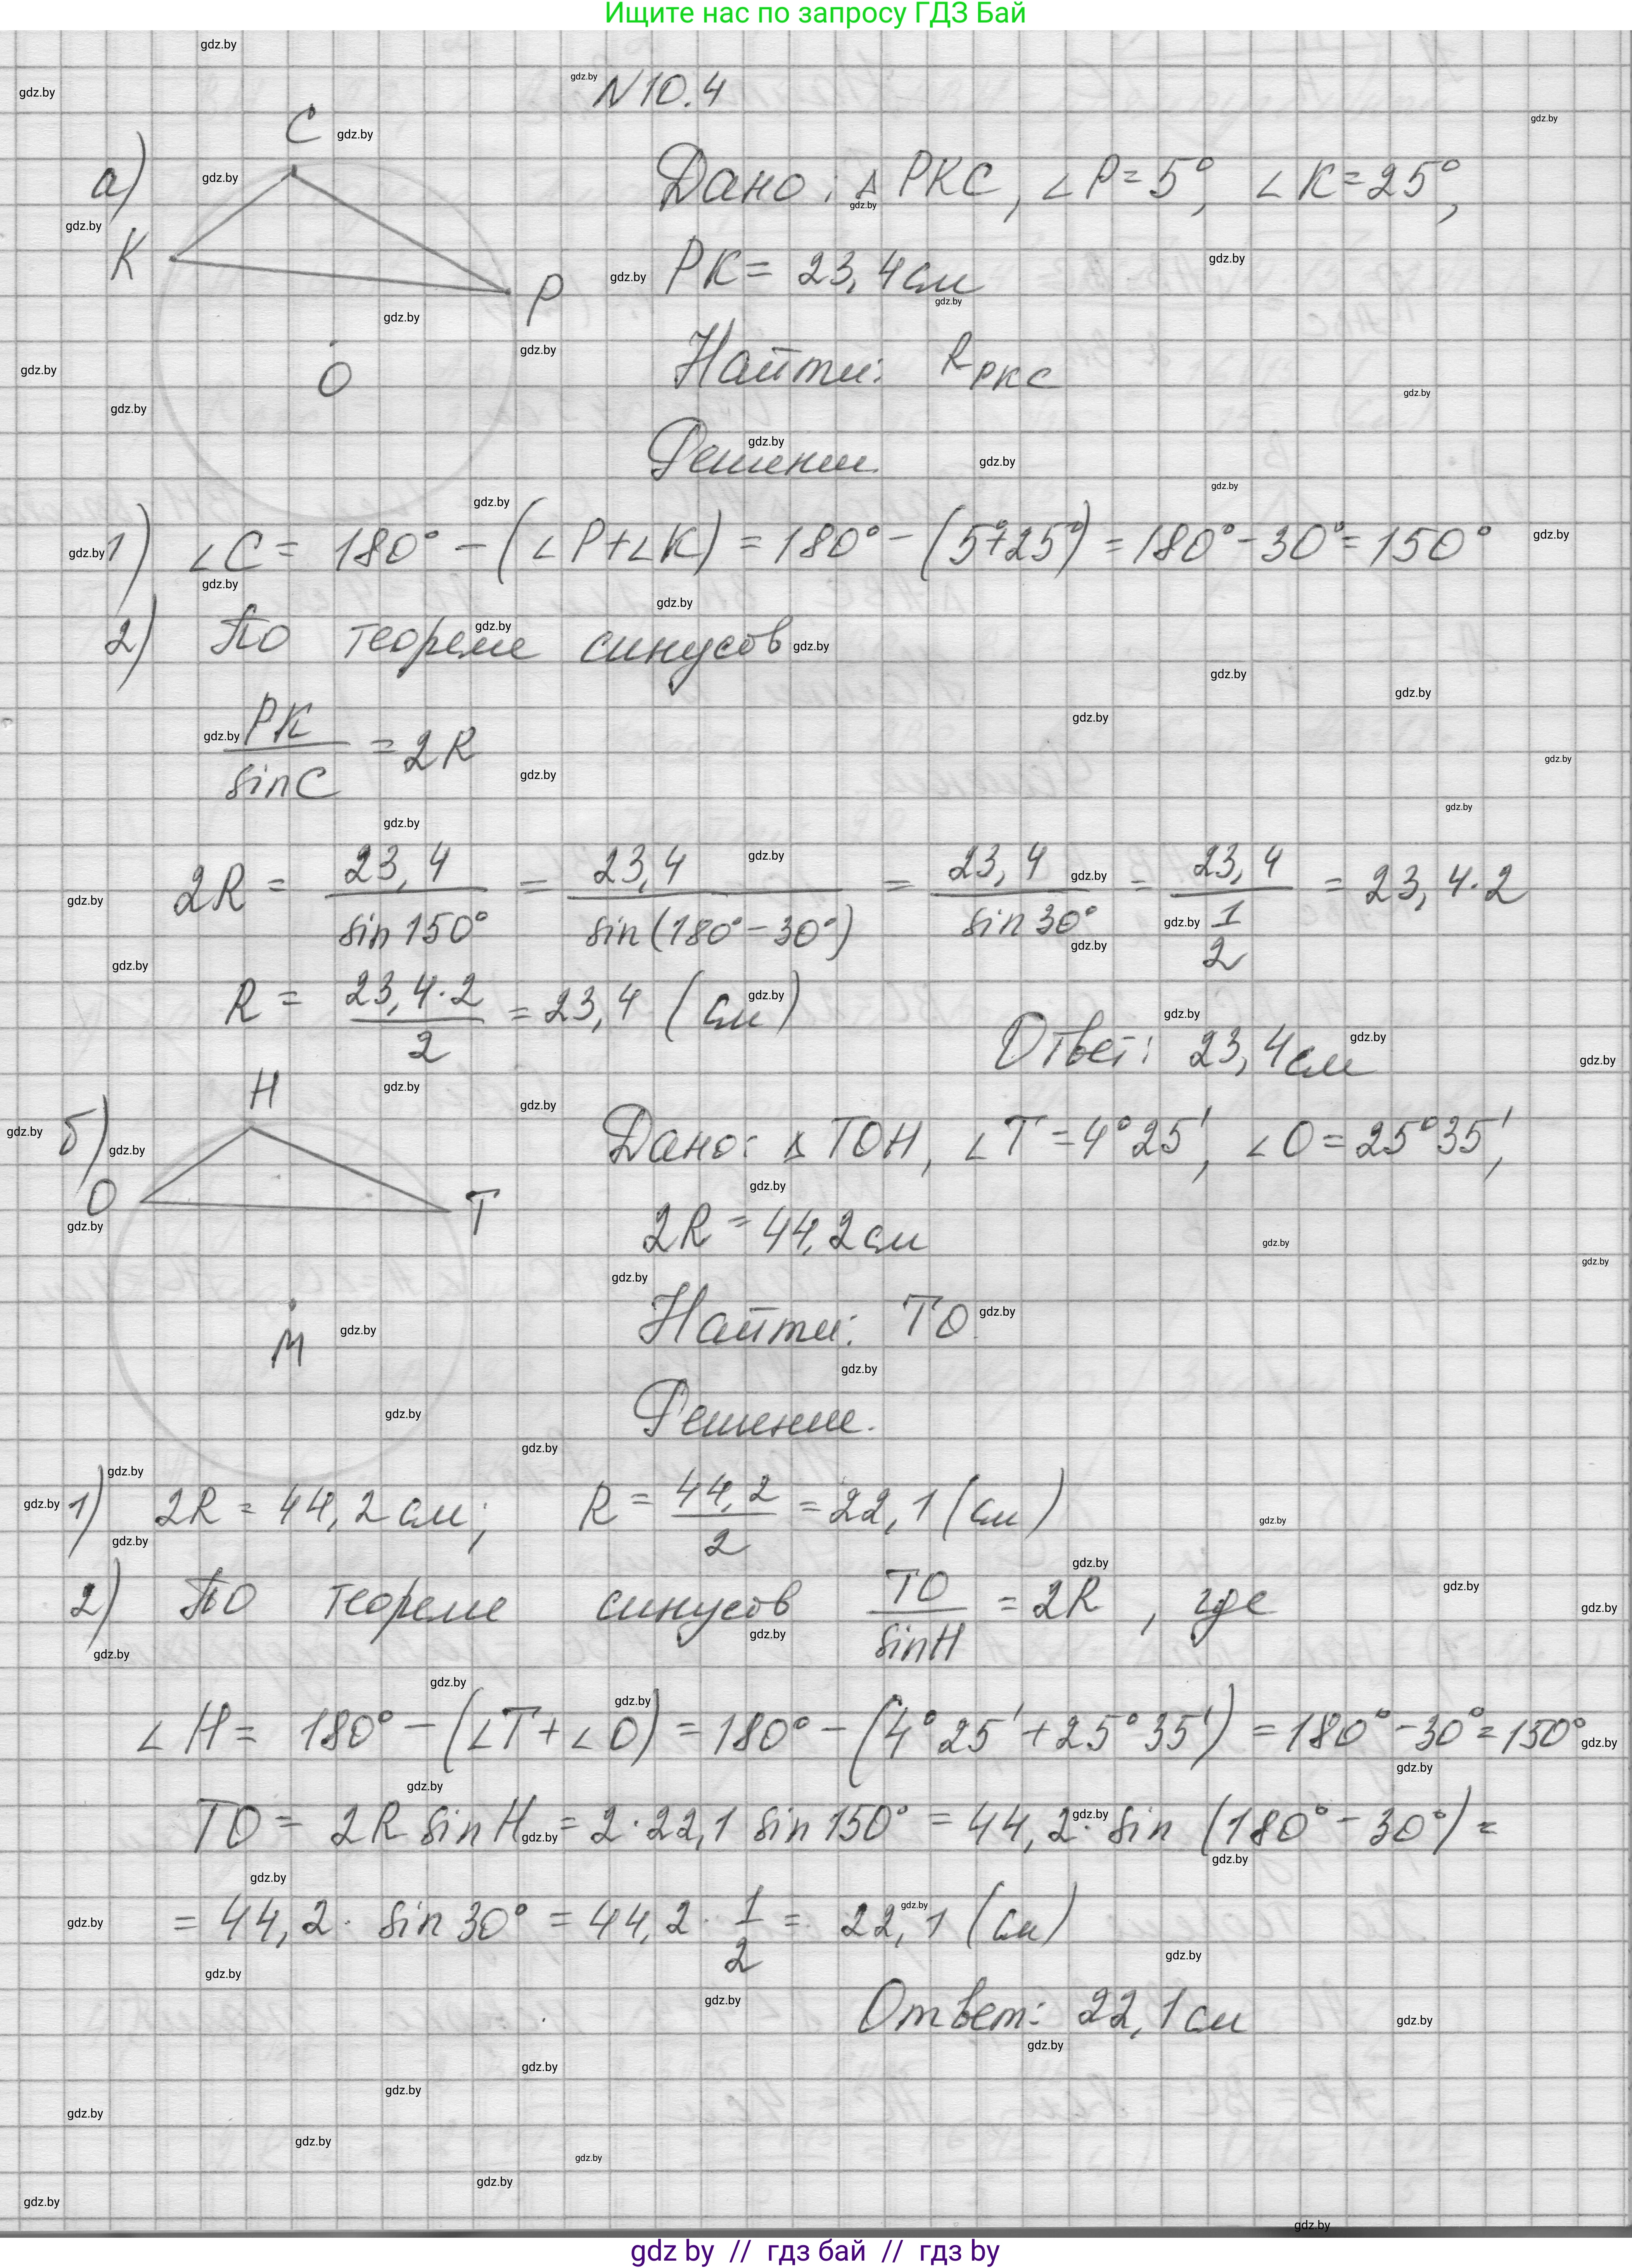 Ищите нас по запросу ГДЗ Бай
N10.4
а)
C
K
P
O
Дано: △ PKC, ∠P=5°, ∠K=25°,
PK= 23,4 см
Найти: R_PKC
Решение
1) ∠C = 180° - (∠P+∠K) = 180° - (5°+25°) = 180°-30° = 150°
2) По теореме синусов
PK/sinC = 2R
2R = 23,4/sin150° = 23,4/sin(180°-30°) = 23,4/sin30° = 23,4/(1/2) = 23,4·2
R = 23,4·2/2 = 23,4 (см)
Ответ: 23,4 см
б)
H
O
T
M
Дано: △ TOH, ∠T=4°25′, ∠O=25°35′,
2R = 44,2 см
Найти: TO
Решение.
1) 2R = 44,2 см; R = 44,2/2 = 22,1 (см)
2) По теореме синусов TO/sinH = 2R, где
∠H = 180° - (∠T+∠O) = 180° - (4°25′+25°35′) = 180°-30° = 150°
TO = 2R sinH = 2·22,1 sin150° = 44,2· sin (180°-30°) =
= 44,2· sin30° = 44,2· 1/2 = 22,1 (см)
Ответ: 22,1 см
gdz by // гдз бай // гдз by